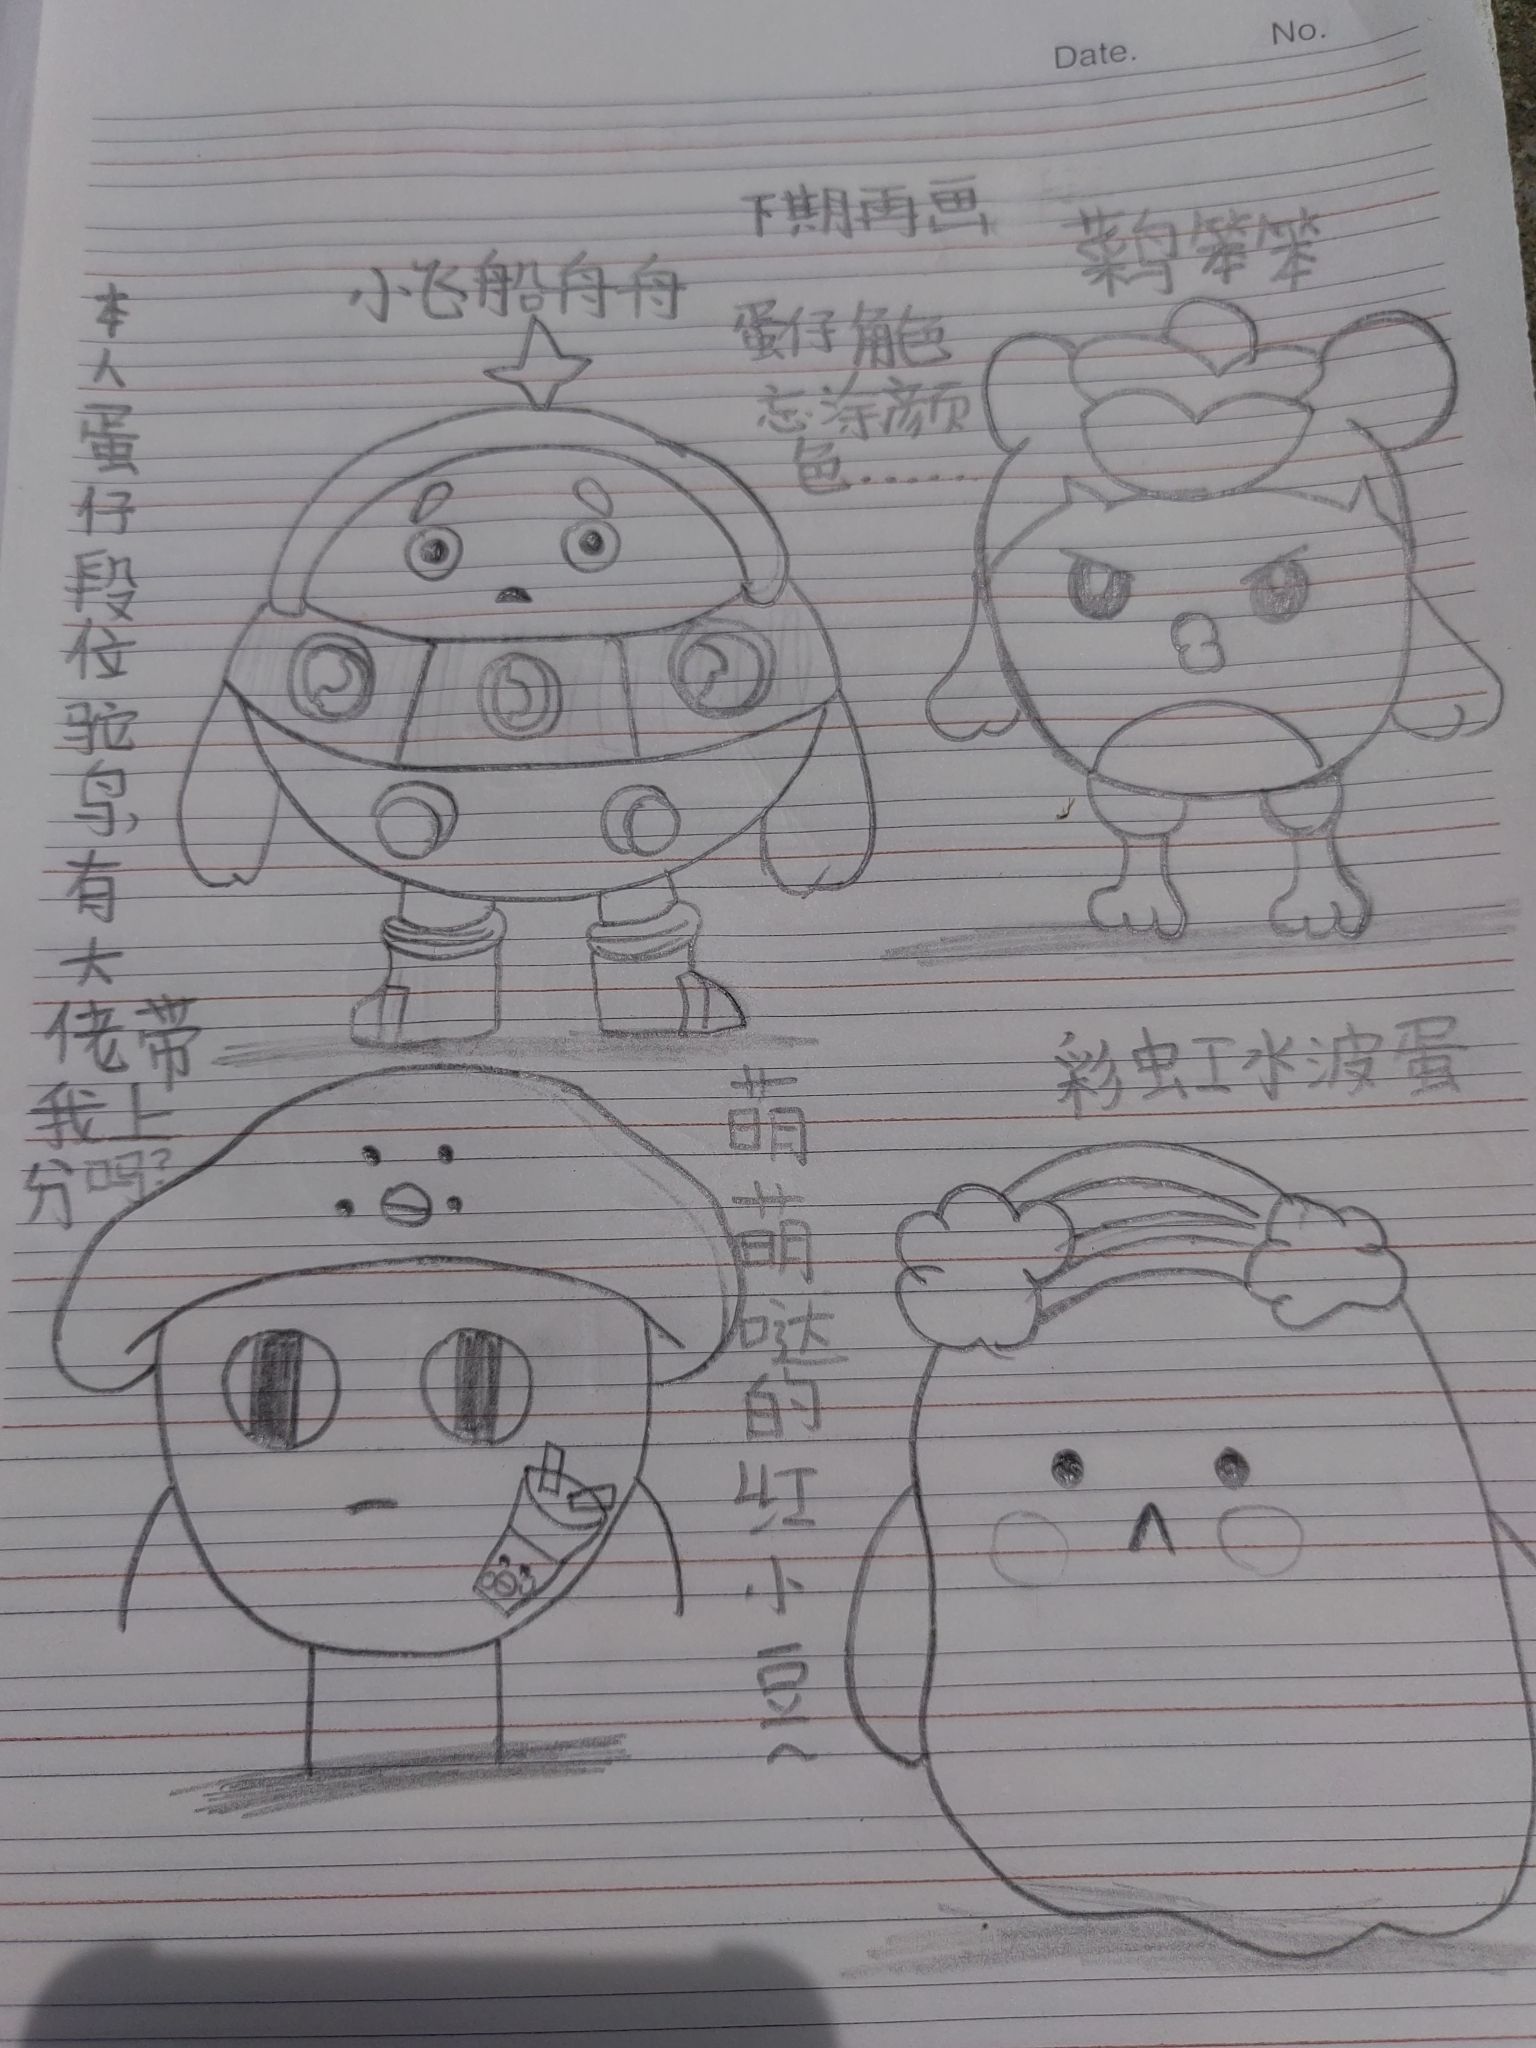 Date.
No.
下期再画
菜鸟笨笨
小飞船舟舟
蛋仔角色
忘涂颜
色......
本人蛋仔段位鸵鸟有大
佬带
我上
分吗?
彩虹水波蛋
萌萌哒的红小豆~